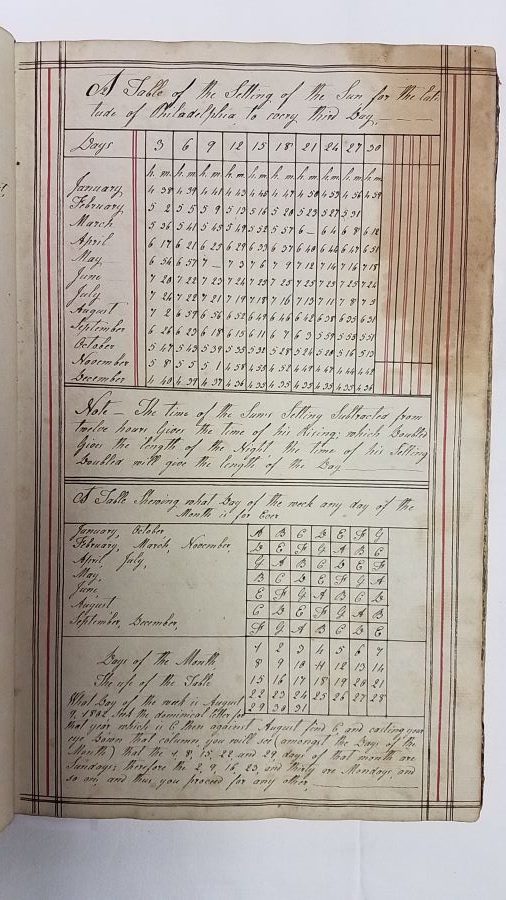 A Table of the Setting of the Sun for the Lati
tude of Philadelphia to every third Day
Days 3 6 9 12 15 18 21 24 27 30
h. m. h. m. h. m. h. m. h. m. h. m. h. m. h. m. h. m. h. m.
January 4 38 4 39 4 41 4 43 4 45 4 47 4 50 4 53 4 56 4 59
February 5 2 5 5 5 9 5 13 5 16 5 20 5 23 5 27 5 31
March 5 36 5 41 5 45 5 49 5 52 5 57 6 – 6 4 6 8 6 12
April 6 17 6 21 6 25 6 29 6 33 6 37 6 40 6 44 6 47 6 51
May 6 54 6 57 7 – 7 3 7 6 7 9 7 12 7 14 7 16 7 18
June 7 20 7 22 7 23 7 24 7 25 7 25 7 25 7 25 7 25 7 24
July 7 24 7 22 7 21 7 19 7 18 7 16 7 13 7 11 7 8 7 5
August 7 2 6 59 6 56 6 52 6 49 6 46 6 42 6 38 6 35 6 31
September 6 26 6 23 6 18 6 15 6 11 6 7 6 3 5 59 5 55 5 51
October 5 47 5 43 5 39 5 35 5 32 5 28 5 24 5 20 5 16 5 13
November 5 8 5 5 5 1 4 58 4 55 4 52 4 49 4 47 4 44 4 42
December 4 40 4 38 4 37 4 36 4 35 4 35 4 35 4 35 4 35 4 36
Note – The time of the Suns Setting Subtracted from
twelve hours Gives the time of his Rising; which Doubled
Gives the length of the Night, the time of his Setting
Doubled will give the length of the Day
A Table Shewing what Day of the week any day of the
Month is for Ever
January, October A B C D E F G
February, March, November, D E F G A B C
April, July, G A B C D E F
May, B C D E F G A
June, E F G A B C D
August C D E F G A B
September, December, F G A B C D E
1 2 3 4 5 6 7
Days of the Month 8 9 10 11 12 13 14
The use of the Table 15 16 17 18 19 20 21
What Day of the week is August 22 23 24 25 26 27 28
9, 1802, find the dominical letter for 29 30 31
that year which is C then against August find C, and casting your
eye Down that column you will see (amongst the Days of the
Month) that the 1, 8, 15, 22 and 29 days of that month are
Sundays; therefore the 2, 9, 16, 23, and thirty are Mondays, and
so on, and thus you proceed for any other